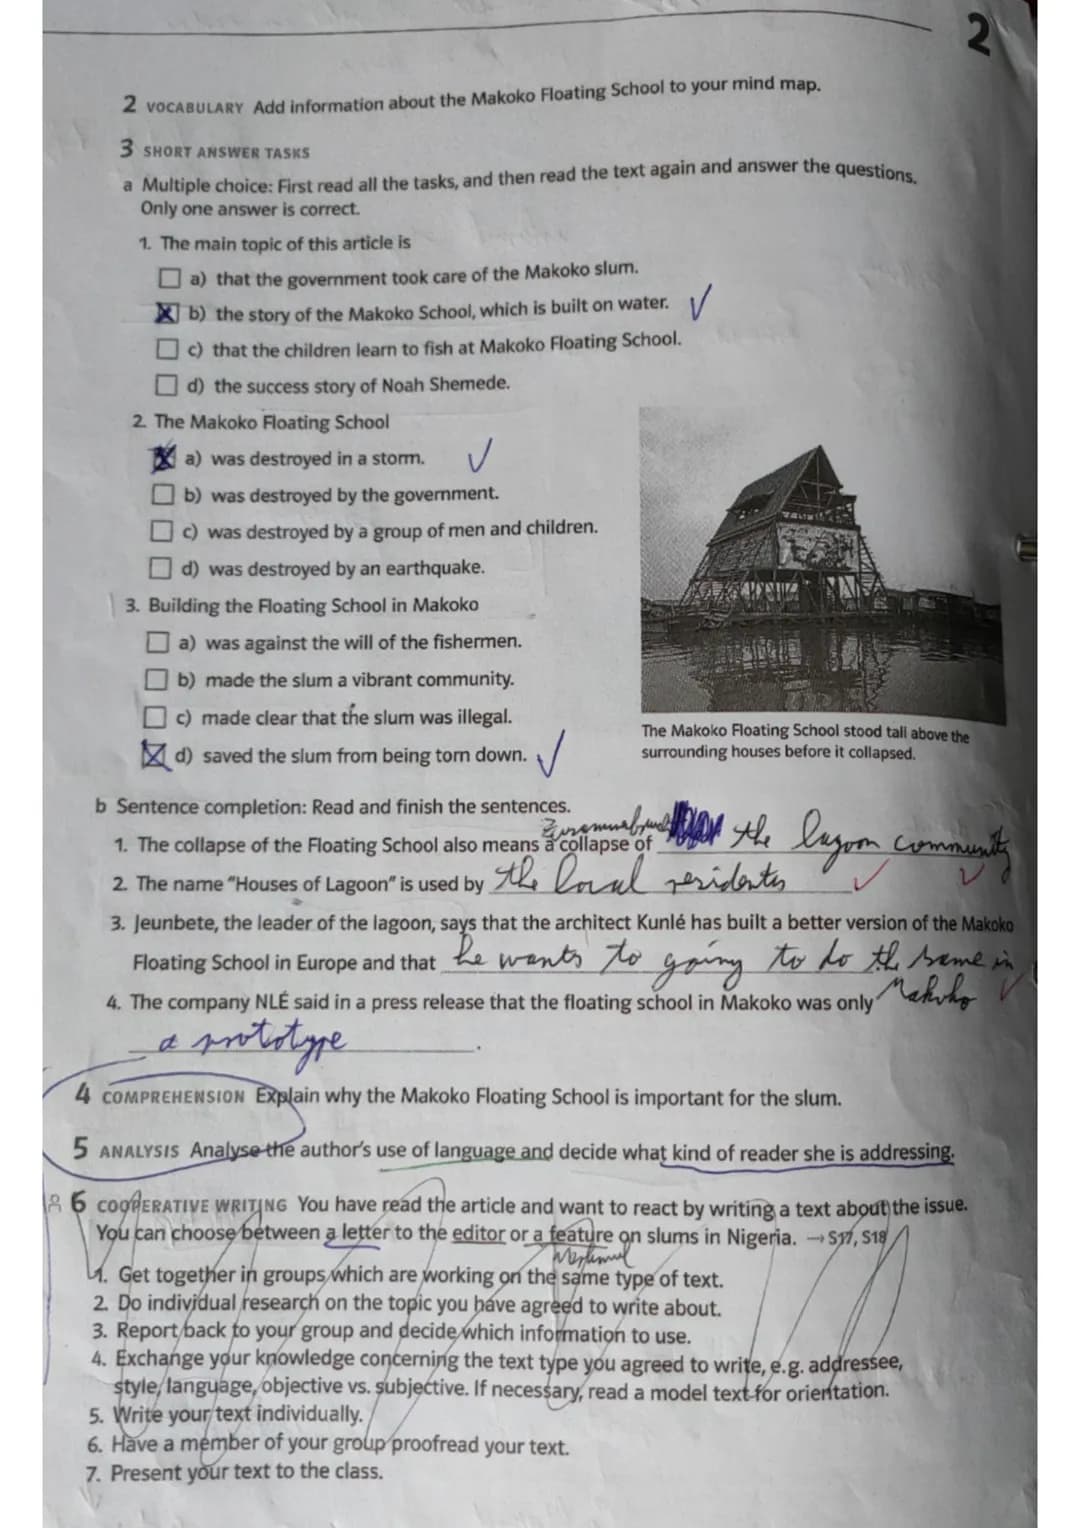 2
2 VOCABULARY Add information about the Makoko Floating School to your mind map.
3 SHORT ANSWER TASKS
a Multiple choice: First read all the tasks, and then read the text again and answer the questions.
Only one answer is correct.
1. The main topic of this article is
a) that the government took care of the Makoko slum.
b) the story of the Makoko School, which is built on water.
c) that the children learn to fish at Makoko Floating School.
d) the success story of Noah Shemede.
2. The Makoko Floating School
a) was destroyed in a storm.
b) was destroyed by the government.
c) was destroyed by a group of men and children.
d) was destroyed by an earthquake.
3. Building the Floating School in Makoko
a) was against the will of the fishermen.
b) made the slum a vibrant community.
c) made clear that the slum was illegal.
d) saved the slum from being torn down.
The Makoko Floating School stood tall above the
surrounding houses before it collapsed.
b Sentence completion: Read and finish the sentences.
1. The collapse of the Floating School also means a collapse of the lagoon community
2. The name "Houses of Lagoon" is used by the local residents
3. Jeunbete, the leader of the lagoon, says that the architect Kunlé has built a better version of the Makoko
Floating School in Europe and that he wants to going to do the same in
Makoko
4. The company NLÉ said in a press release that the floating school in Makoko was only
a prototype.
4 COMPREHENSION Explain why the Makoko Floating School is important for the slum.
5 ANALYSIS Analyse the author's use of language and decide what kind of reader she is addressing.
6 COOPERATIVE WRITING You have read the article and want to react by writing a text about the issue.
You can choose between a letter to the editor or a feature on slums in Nigeria. → S17, S18
1. Get together in groups which are working on the same type of text.
2. Do individual research on the topic you have agreed to write about.
3. Report back to your group and decide which information to use.
4. Exchange your knowledge concerning the text type you agreed to write, e.g. addressee,
style, language, objective vs. subjective. If necessary, read a model text for orientation.
5. Write your text individually.
6. Have a member of your group proofread your text.
7. Present your text to the class.